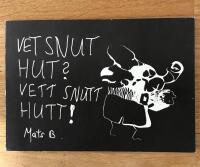 VET SNUT
HUT?
VETT SNUTT
HUTT!
Mats B.